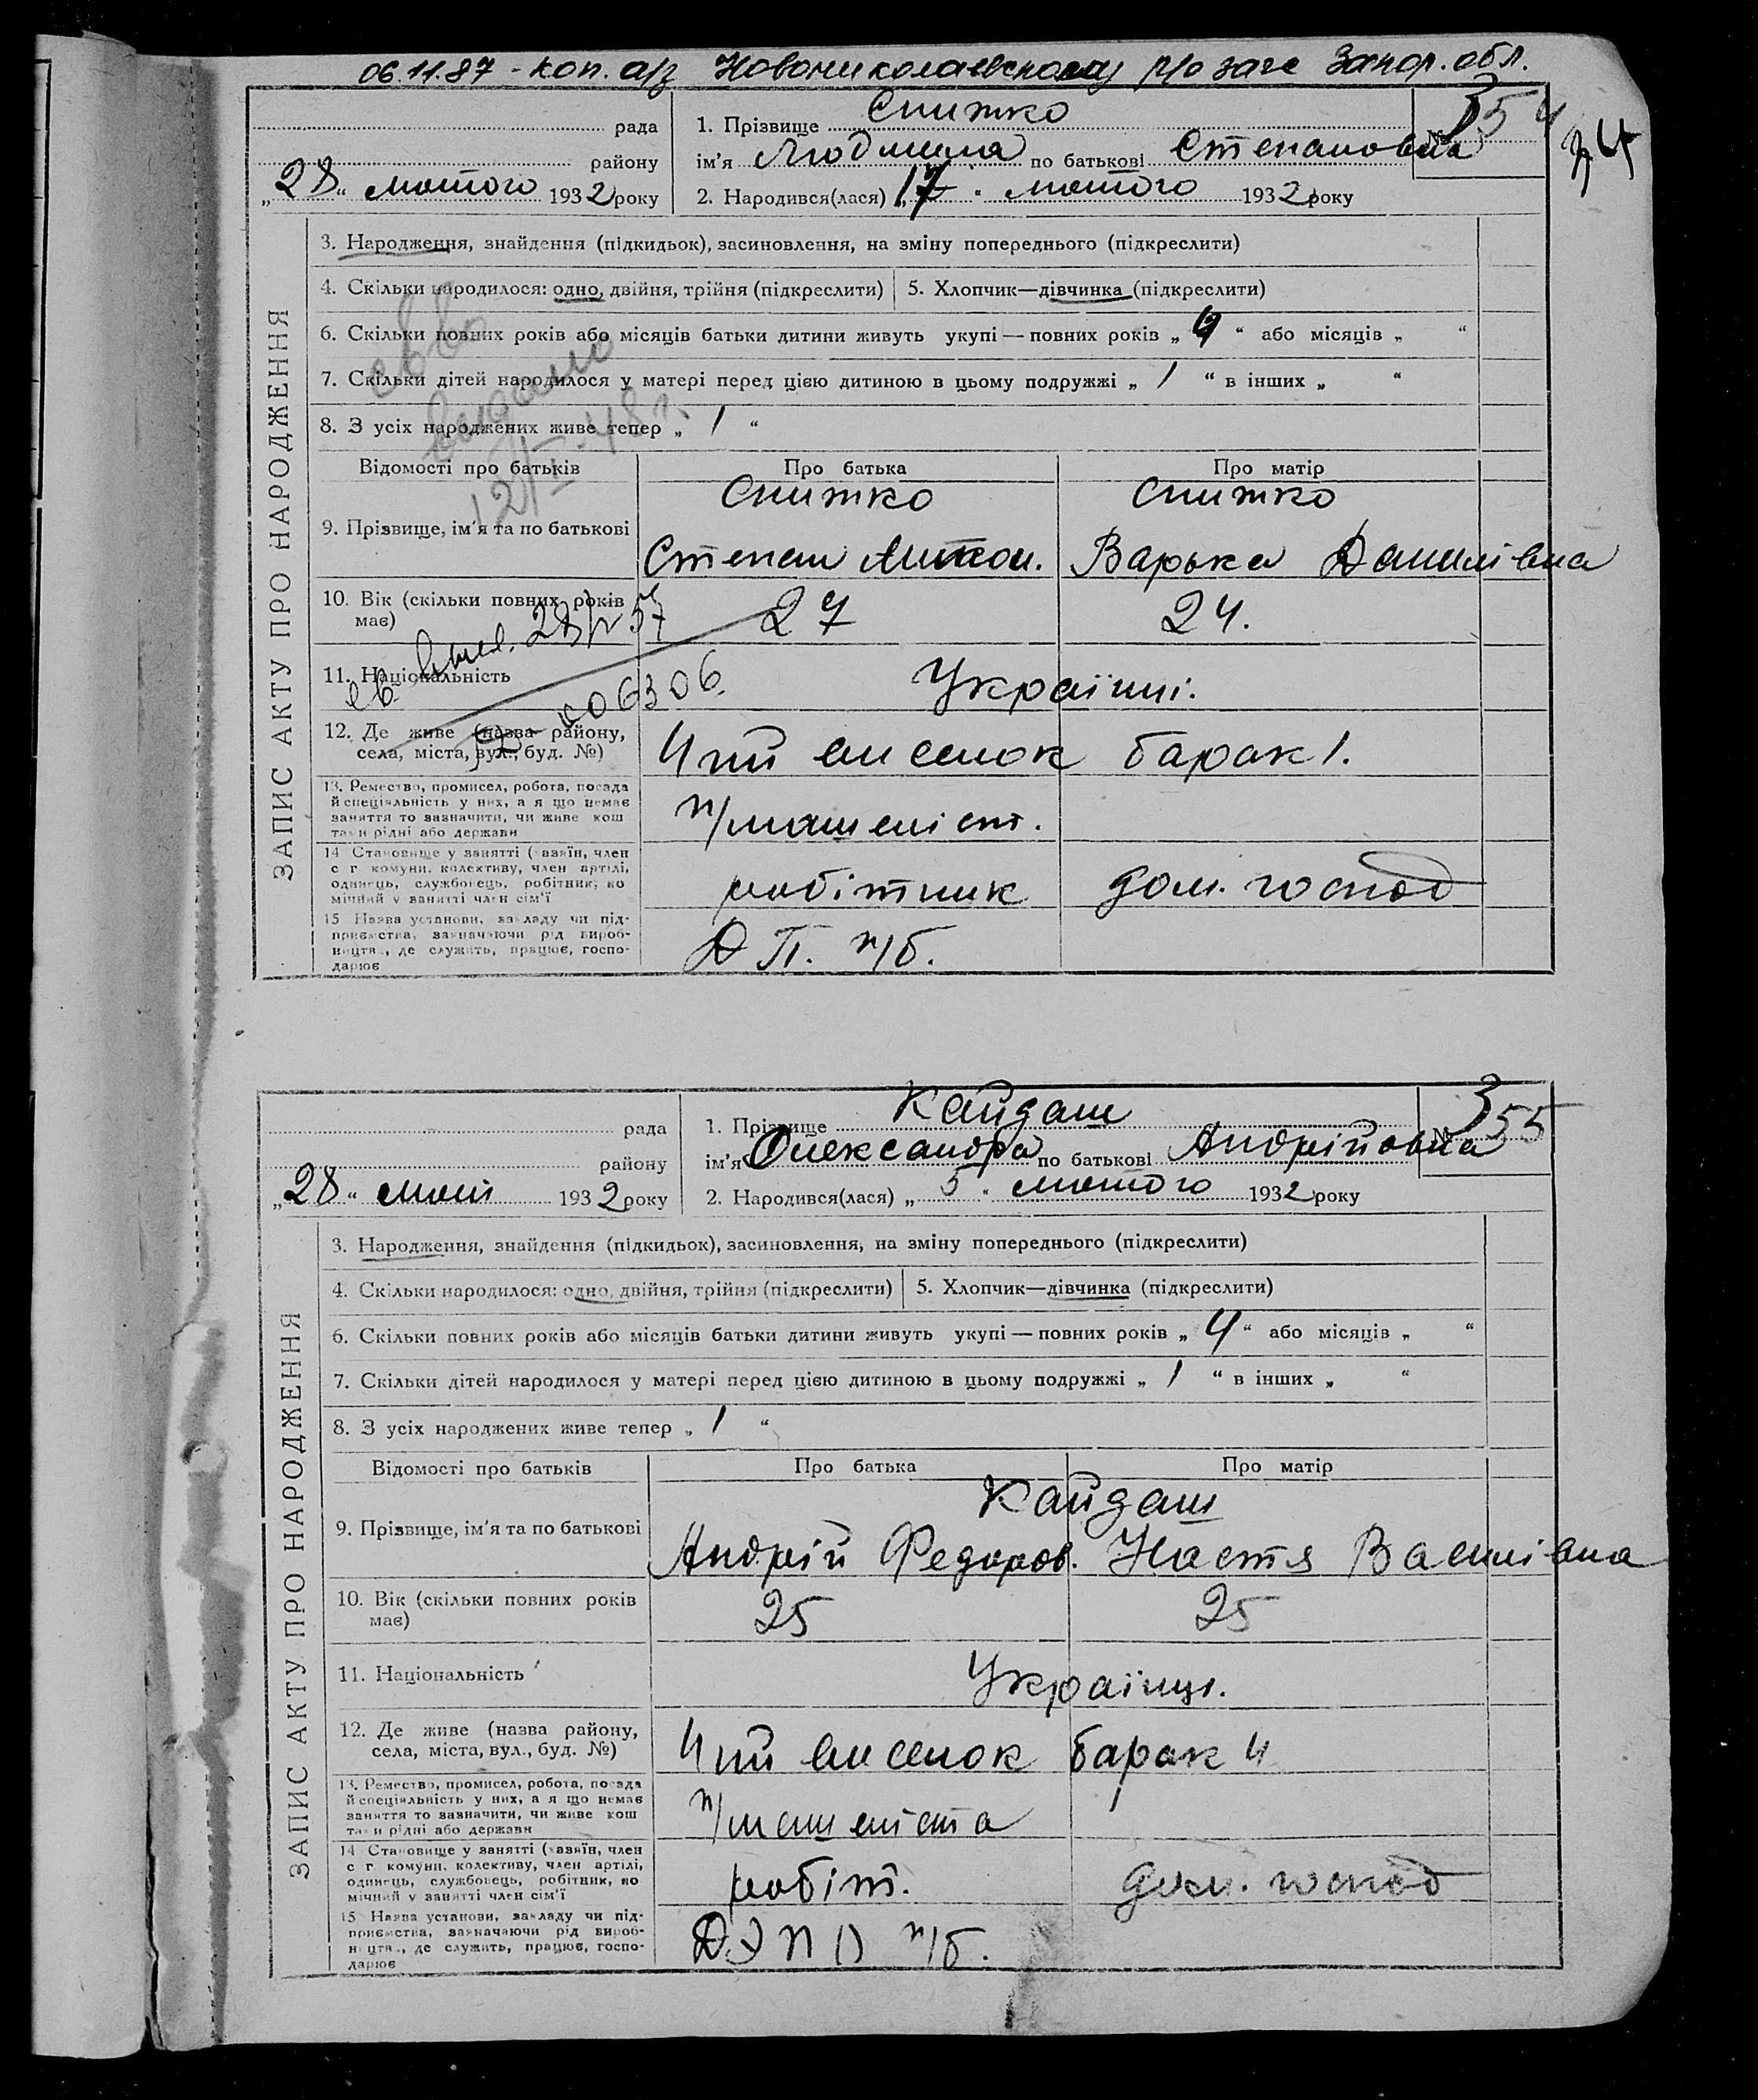 06.11.87 - коп. а/з Новониколаевскому р/о загс Запор. обл.
рада
району
„28“ лютого 1932 року
1. Прізвище Снижко
ім'я Людмила по батькові Степановна
2. Народився(лася) „17“ лютого 1932 року
№ 354
ЗАПИС АКТУ ПРО НАРОДЖЕННЯ
3. Народження, знайдення (підкидьок), засиновлення, на зміну попереднього (підкреслити)
4. Скільки народилося: одно, двійня, трійня (підкреслити) 5. Хлопчик—дівчинка (підкреслити)
6. Скільки повних років або місяців батьки дитини живуть укупі — повних років „ “ або місяців „ “
7. Скільки дітей народилося у матері перед цією дитиною в цьому подружжі „ 1 “ в інших „ “
8. З усіх народжених живе тепер „ 1 “
Відомості про батьків Про батька Про матір
Снижко Снижко
9. Прізвище, ім'я та по батькові
Степан Антон. Варька Данилівна
10. Вік (скільки повних років має) 27 24.
11. Національність Українці.
006306
12. Де живе (назва району, села, міста, вул., буд. №) 4ий виселок барак 1.
13. Ремество, промисел, робота, посада
й спеціяльність у них, а я що немає
заняття то зазначити, чи живе кош
та и рідні або держави
п/машиніст.
14 Становище у занятті (хазяїн, член
с г комуни, колективу, член артілі,
одинець, службовець, робітник, по
мічний у занятті член сім'ї
робітник дом. господ
15 Назва установи, закладу чи під-
приємства, зазначаючи рід вироб-
ництва, де служить, працює, госпо-
дарює
Д П. п/б.
рада
району
„28“ 1932 року
1. Прізвище Кайдаш
ім'я Олександра по батькові Андрійовна
2. Народився(лася) „ 5 “ лютого 1932 року
№ 355
ЗАПИС АКТУ ПРО НАРОДЖЕННЯ
3. Народження, знайдення (підкидьок), засиновлення, на зміну попереднього (підкреслити)
4. Скільки народилося: одно, двійня, трійня (підкреслити) 5. Хлопчик—дівчинка (підкреслити)
6. Скільки повних років або місяців батьки дитини живуть укупі — повних років „ 4 “ або місяців „ “
7. Скільки дітей народилося у матері перед цією дитиною в цьому подружжі „ 1 “ в інших „ “
8. З усіх народжених живе тепер „ 1 “
Відомості про батьків Про батька Про матір
Кайдаш
9. Прізвище, ім'я та по батькові
Андрій Федоров. Настя Василівна
10. Вік (скільки повних років має) 25 25
11. Національність Українці.
12. Де живе (назва району, села, міста, вул., буд. №) 4ий виселок барак 4
13. Ремество, промисел, робота, посада
й спеціяльність у них, а я що немає
заняття то зазначити, чи живе кош
та и рідні або держави
п/машиніста
14 Становище у занятті (хазяїн, член
с г комуни, колективу, член артілі,
одинець, службовець, робітник, по
мічний у занятті член сім'ї
робіт. дом. господ
15 Назва установи, закладу чи під-
приємства, зазначаючи рід вироб-
ництва, де служить, працює, госпо-
дарює
п/б.